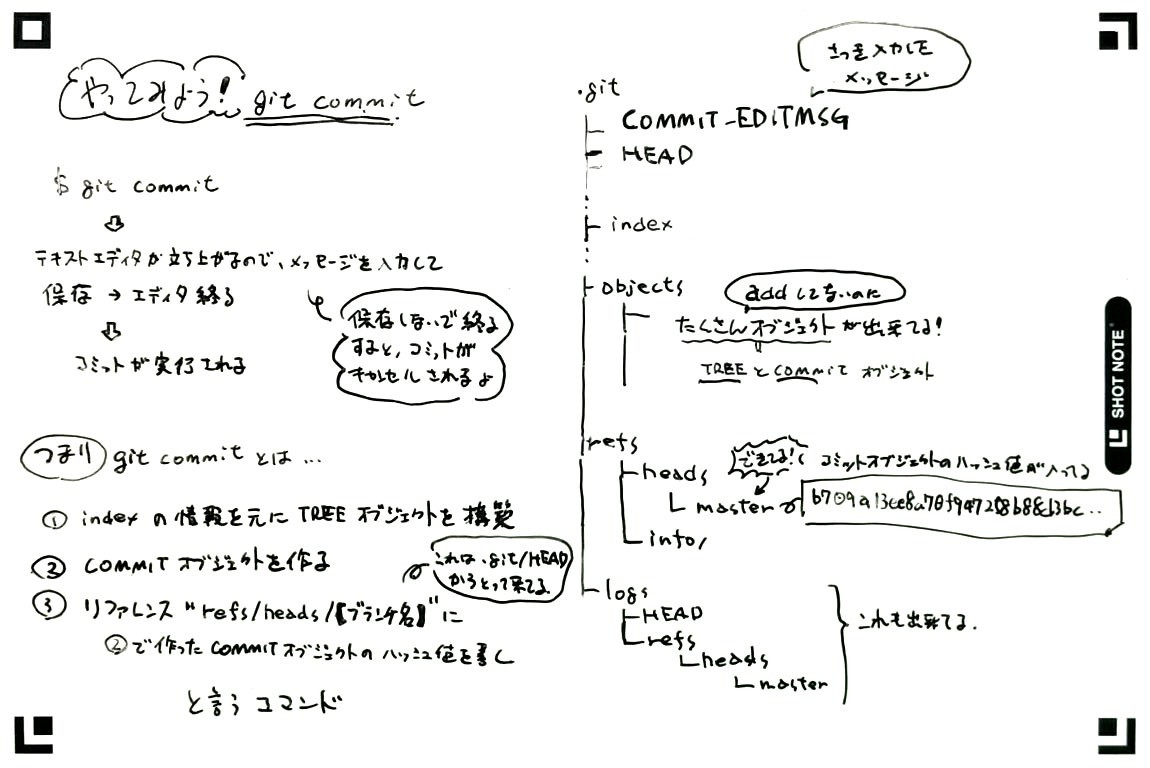 やってみよう! git commit
$ git commit
テキストエディタが立ち上がるので、メッセージを入力して
保存 → エディタ終る
コミットが実行される
保存しないで終る
すると、コミットが
キャンセルされるよ
つまり git commit とは ...
① index の情報を元に TREE オブジェクトを構築
② COMMIT オブジェクトを作る
③ リファレンス "refs/heads/【ブランチ名】" に
これは .git/HEAD
からとって来てる
②で作った COMMIT オブジェクトのハッシュ値を書く
と言うコマンド
さっき入力した
メッセージ
.git
COMMIT_EDITMSG
HEAD
index
objects
addしてないのに
たくさんオブジェクトが出来てる!
TREE と COMMIT オブジェクト
refs
heads
できてる!
コミットオブジェクトのハッシュ値が入ってる
master
info/
logs
HEAD
refs
heads
master
これも出来てる.
SHOT NOTE